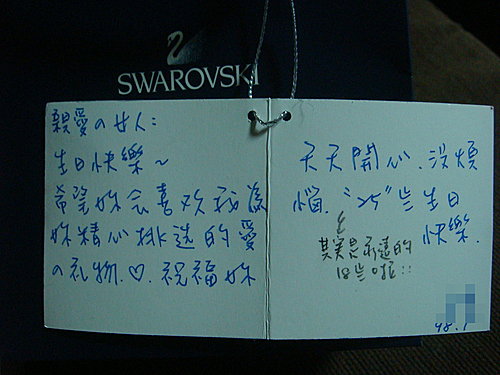 SWAROVSKI
親愛の女人:
生日快樂~
希望妳会喜欢我為
妳精心挑选的愛
の礼物.♡.祝福妳
天天開心.没煩
惱."25"岁生日
快樂.
其実是永遠的
18岁啦::
98.1